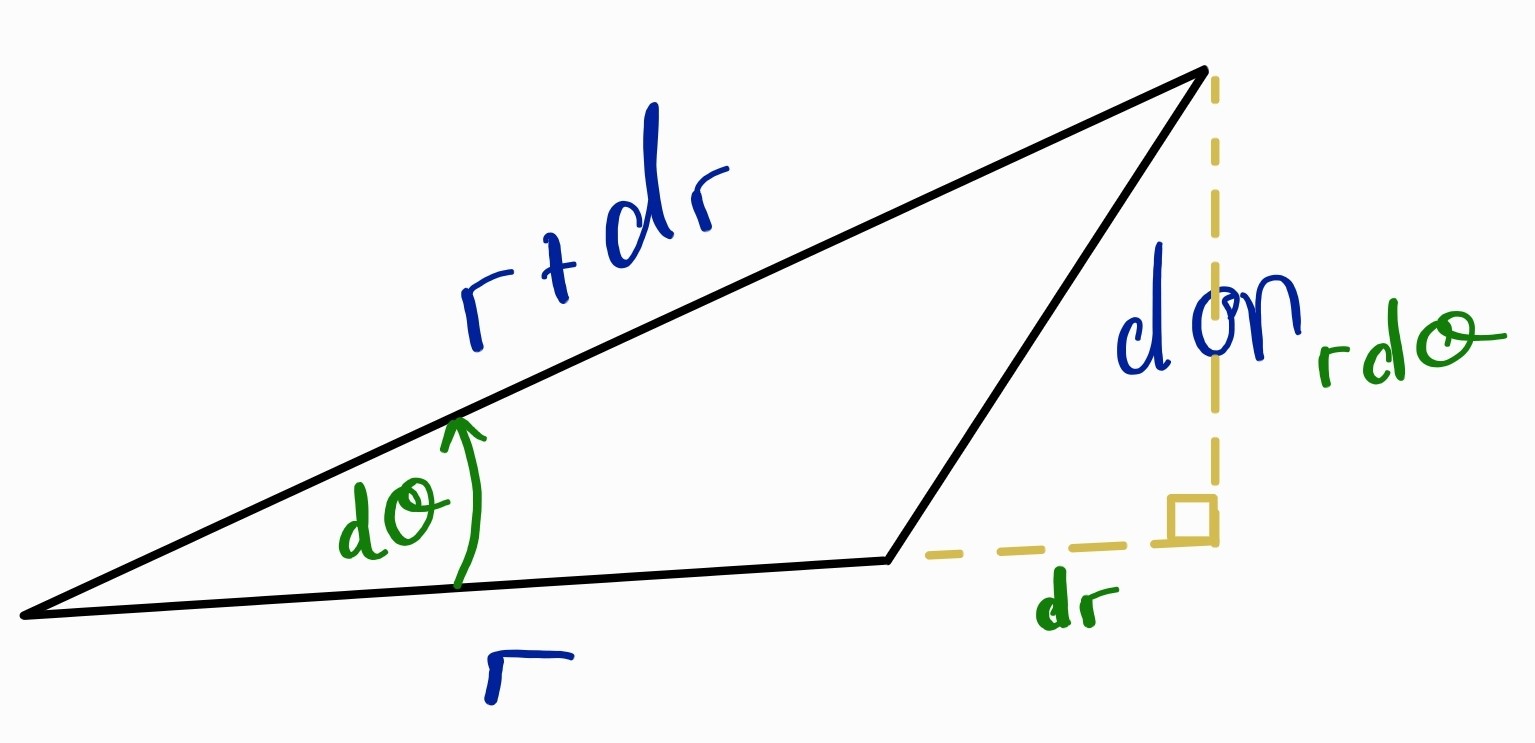 r+dr
don
rdθ
dθ
dr
r